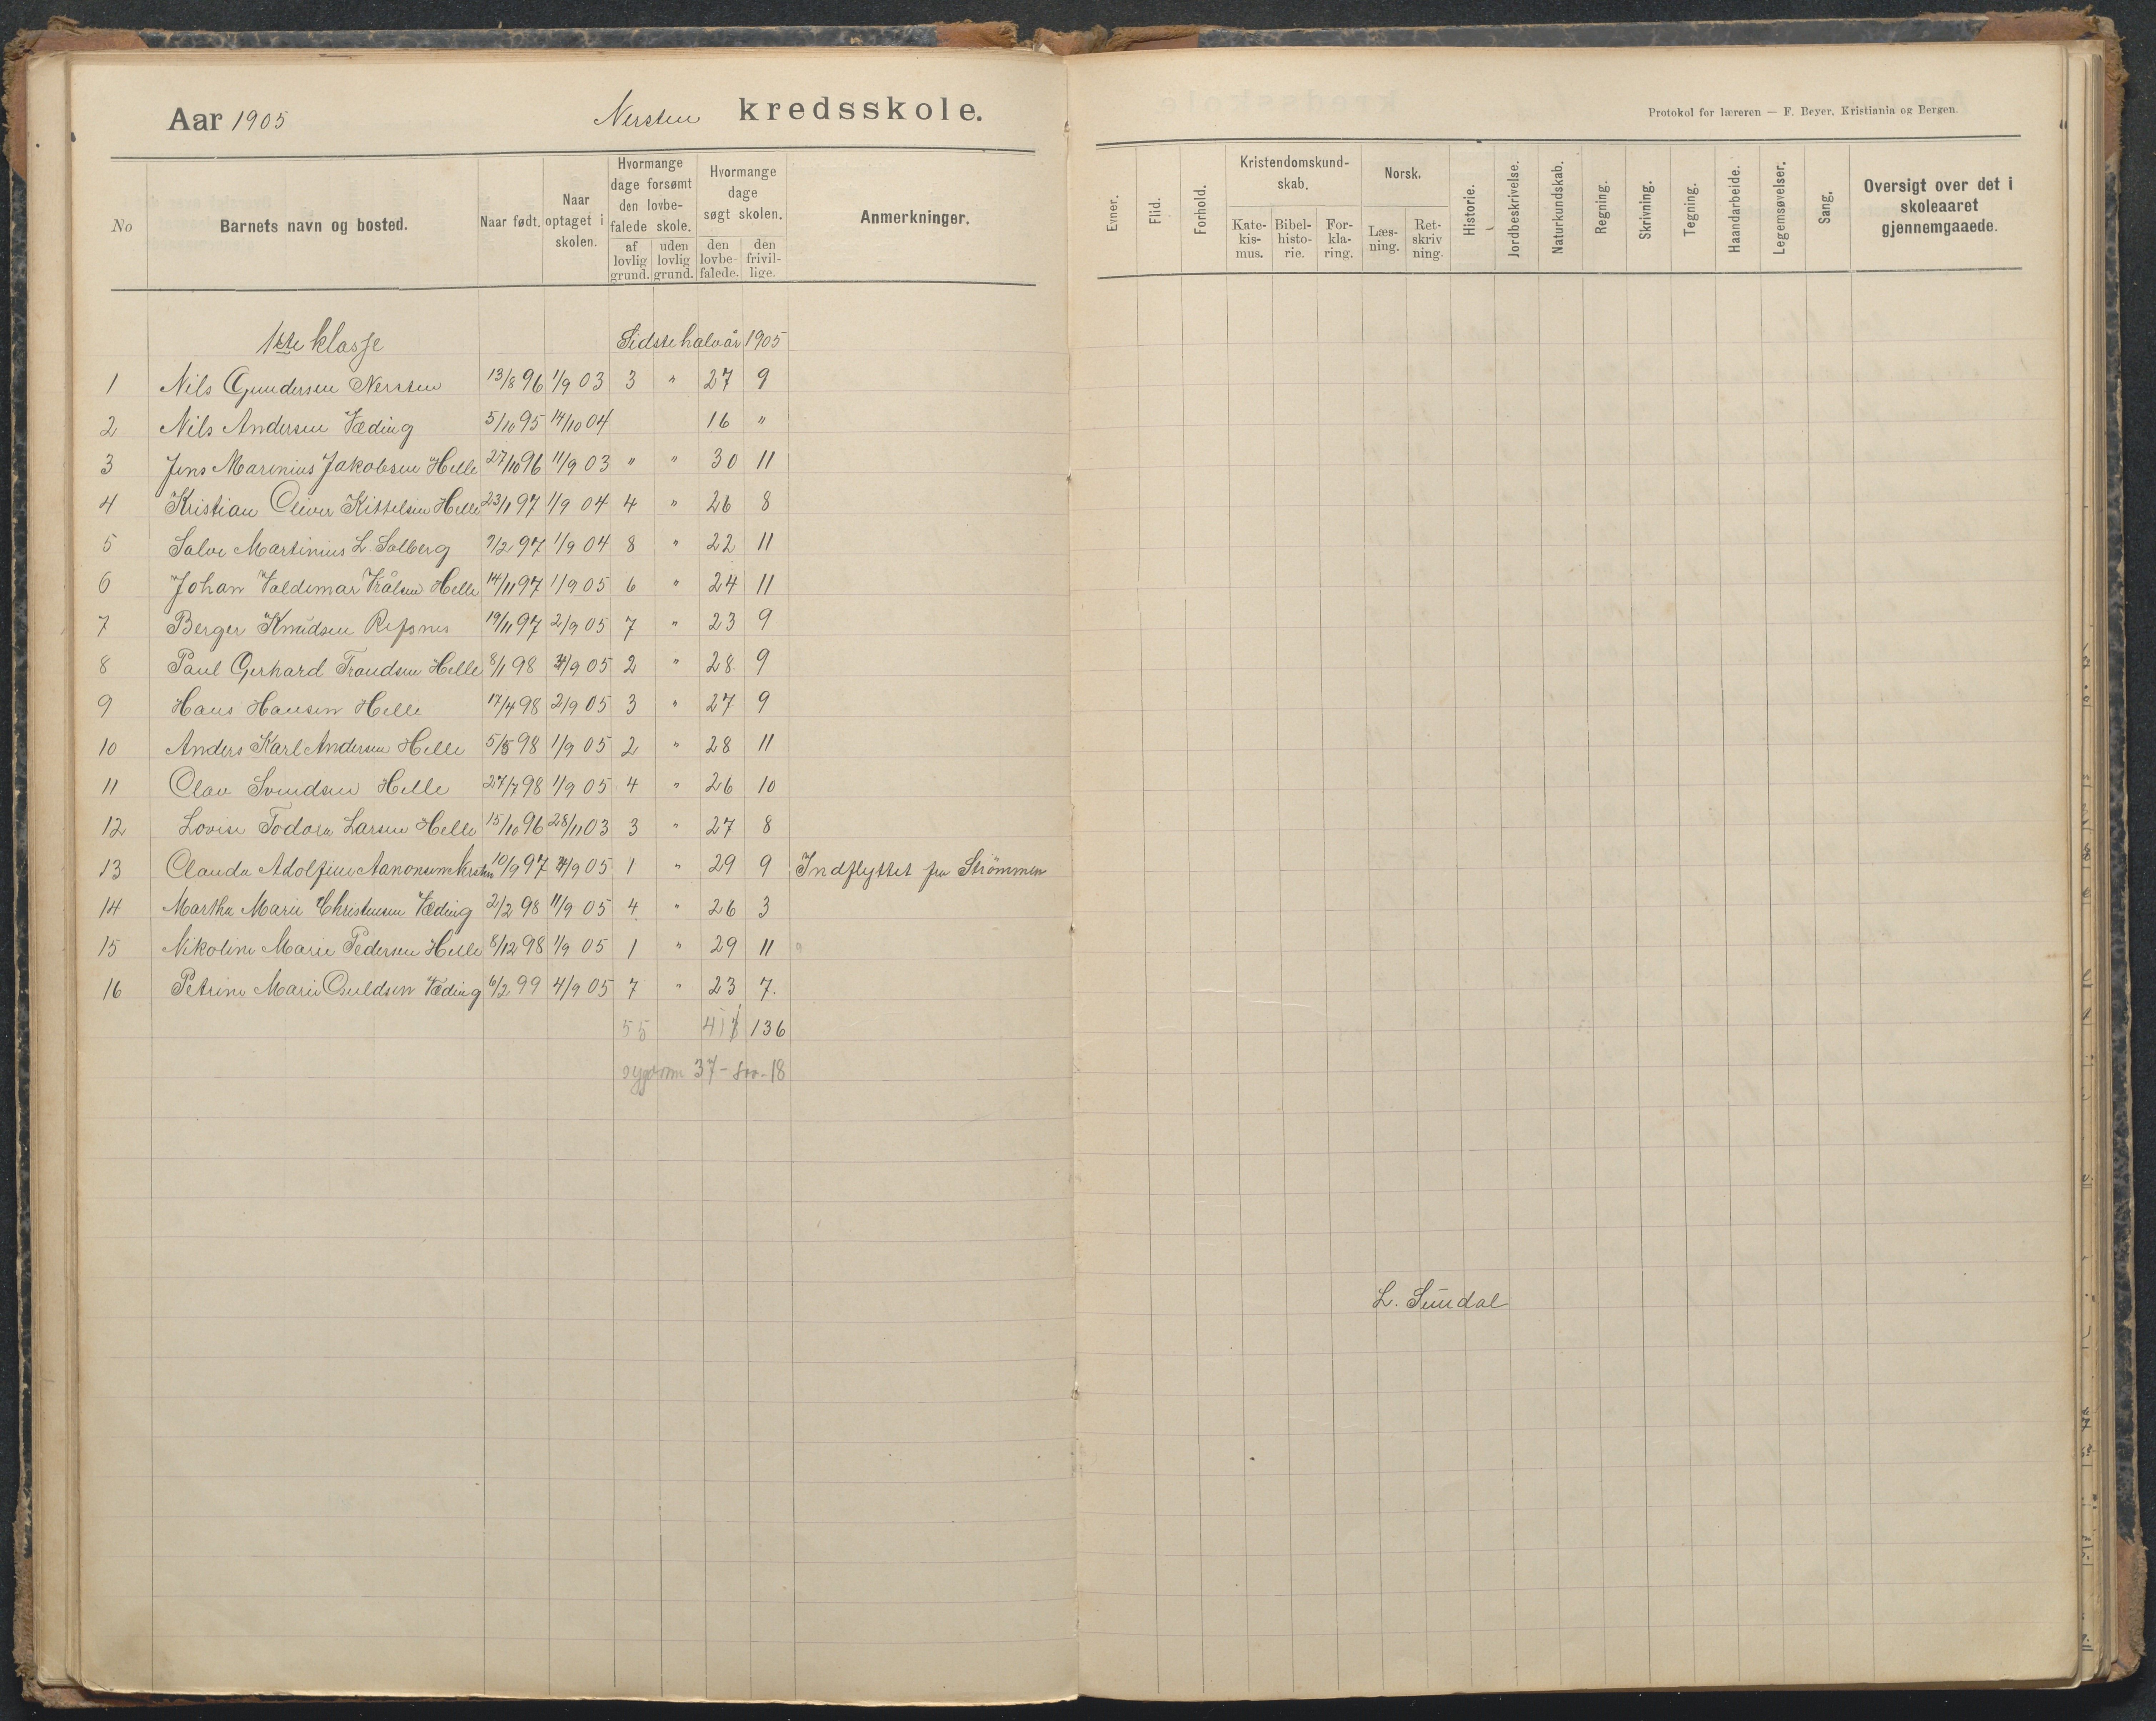 Aar 1905 Nersten kredsskole.
No Barnets navn og bosted. Naar født. Naar optaget i skolen. Hvormange dage forsømt den lovbefalede skole. af lovlig grund. uden lovlig grund. Hvormange dage søgt skolen. den lovbefalede. den frivillige. Anmerkninger.
1ste klasse Sidste halvår 1905
1 Nils Gundersen Nersten 13/8 96 1/9 03 3 " 27 9
2 Nils Andersen Væding 5/10 95 14/10 04 16 "
3 Jens Marinius Jakobsen Helle 27/10 96 11/9 03 " " 30 11
4 Kristian Oliver Kittelsen Helle 23/1 97 1/9 04 4 " 26 8
5 Salve Martinius L. Solberg 7/2 97 1/9 04 8 " 22 11
6 Johan Valdemar Trålsen Helle 14/11 97 1/9 05 6 " 24 11
7 Berger Knudsen Refsnes 19/11 97 2/9 05 7 " 23 9
8 Paul Gerhard Trondsen Helle 8/1 98 /9 05 2 " 28 9
9 Hans Hansen Helle 17/4 98 2/9 05 3 " 27 9
10 Anders Karl Andersen Helle 5/5 98 1/9 05 2 " 28 11
11 Olav Svendsen Helle 27/7 98 1/9 05 4 " 26 10
12 Lovise Todora Larsen Helle 15/10 96 28/11 03 3 " 27 8
13 Clauda Adolfine Aanonsen Nersten 10/9 97 /9 05 1 " 29 9 Indflyttet fra Strömmen
14 Martha Marie Christensen Væding 2/2 98 11/9 05 4 " 26 3
15 Nikoline Marie Pedersen Helle 8/12 98 1/9 05 1 " 29 11
16 Petrine Marie Osuldsen Væding 6/2 99 4/9 05 7 " 23 7.
55 136
sygdom 37 - 18
Protokol for læreren — F. Beyer, Kristiania og Bergen.
Evner. Flid. Forhold. Kristendomskundskab. Katekismus. Bibelhistorie. Forklaring. Norsk. Læsning. Retskrivning. Historie. Jordbeskrivelse. Naturkundskab. Regning. Skrivning. Tegning. Haandarbeide. Legemsøvelser. Sang. Oversigt over det i skoleaaret gjennemgaaede.
L. Sundal